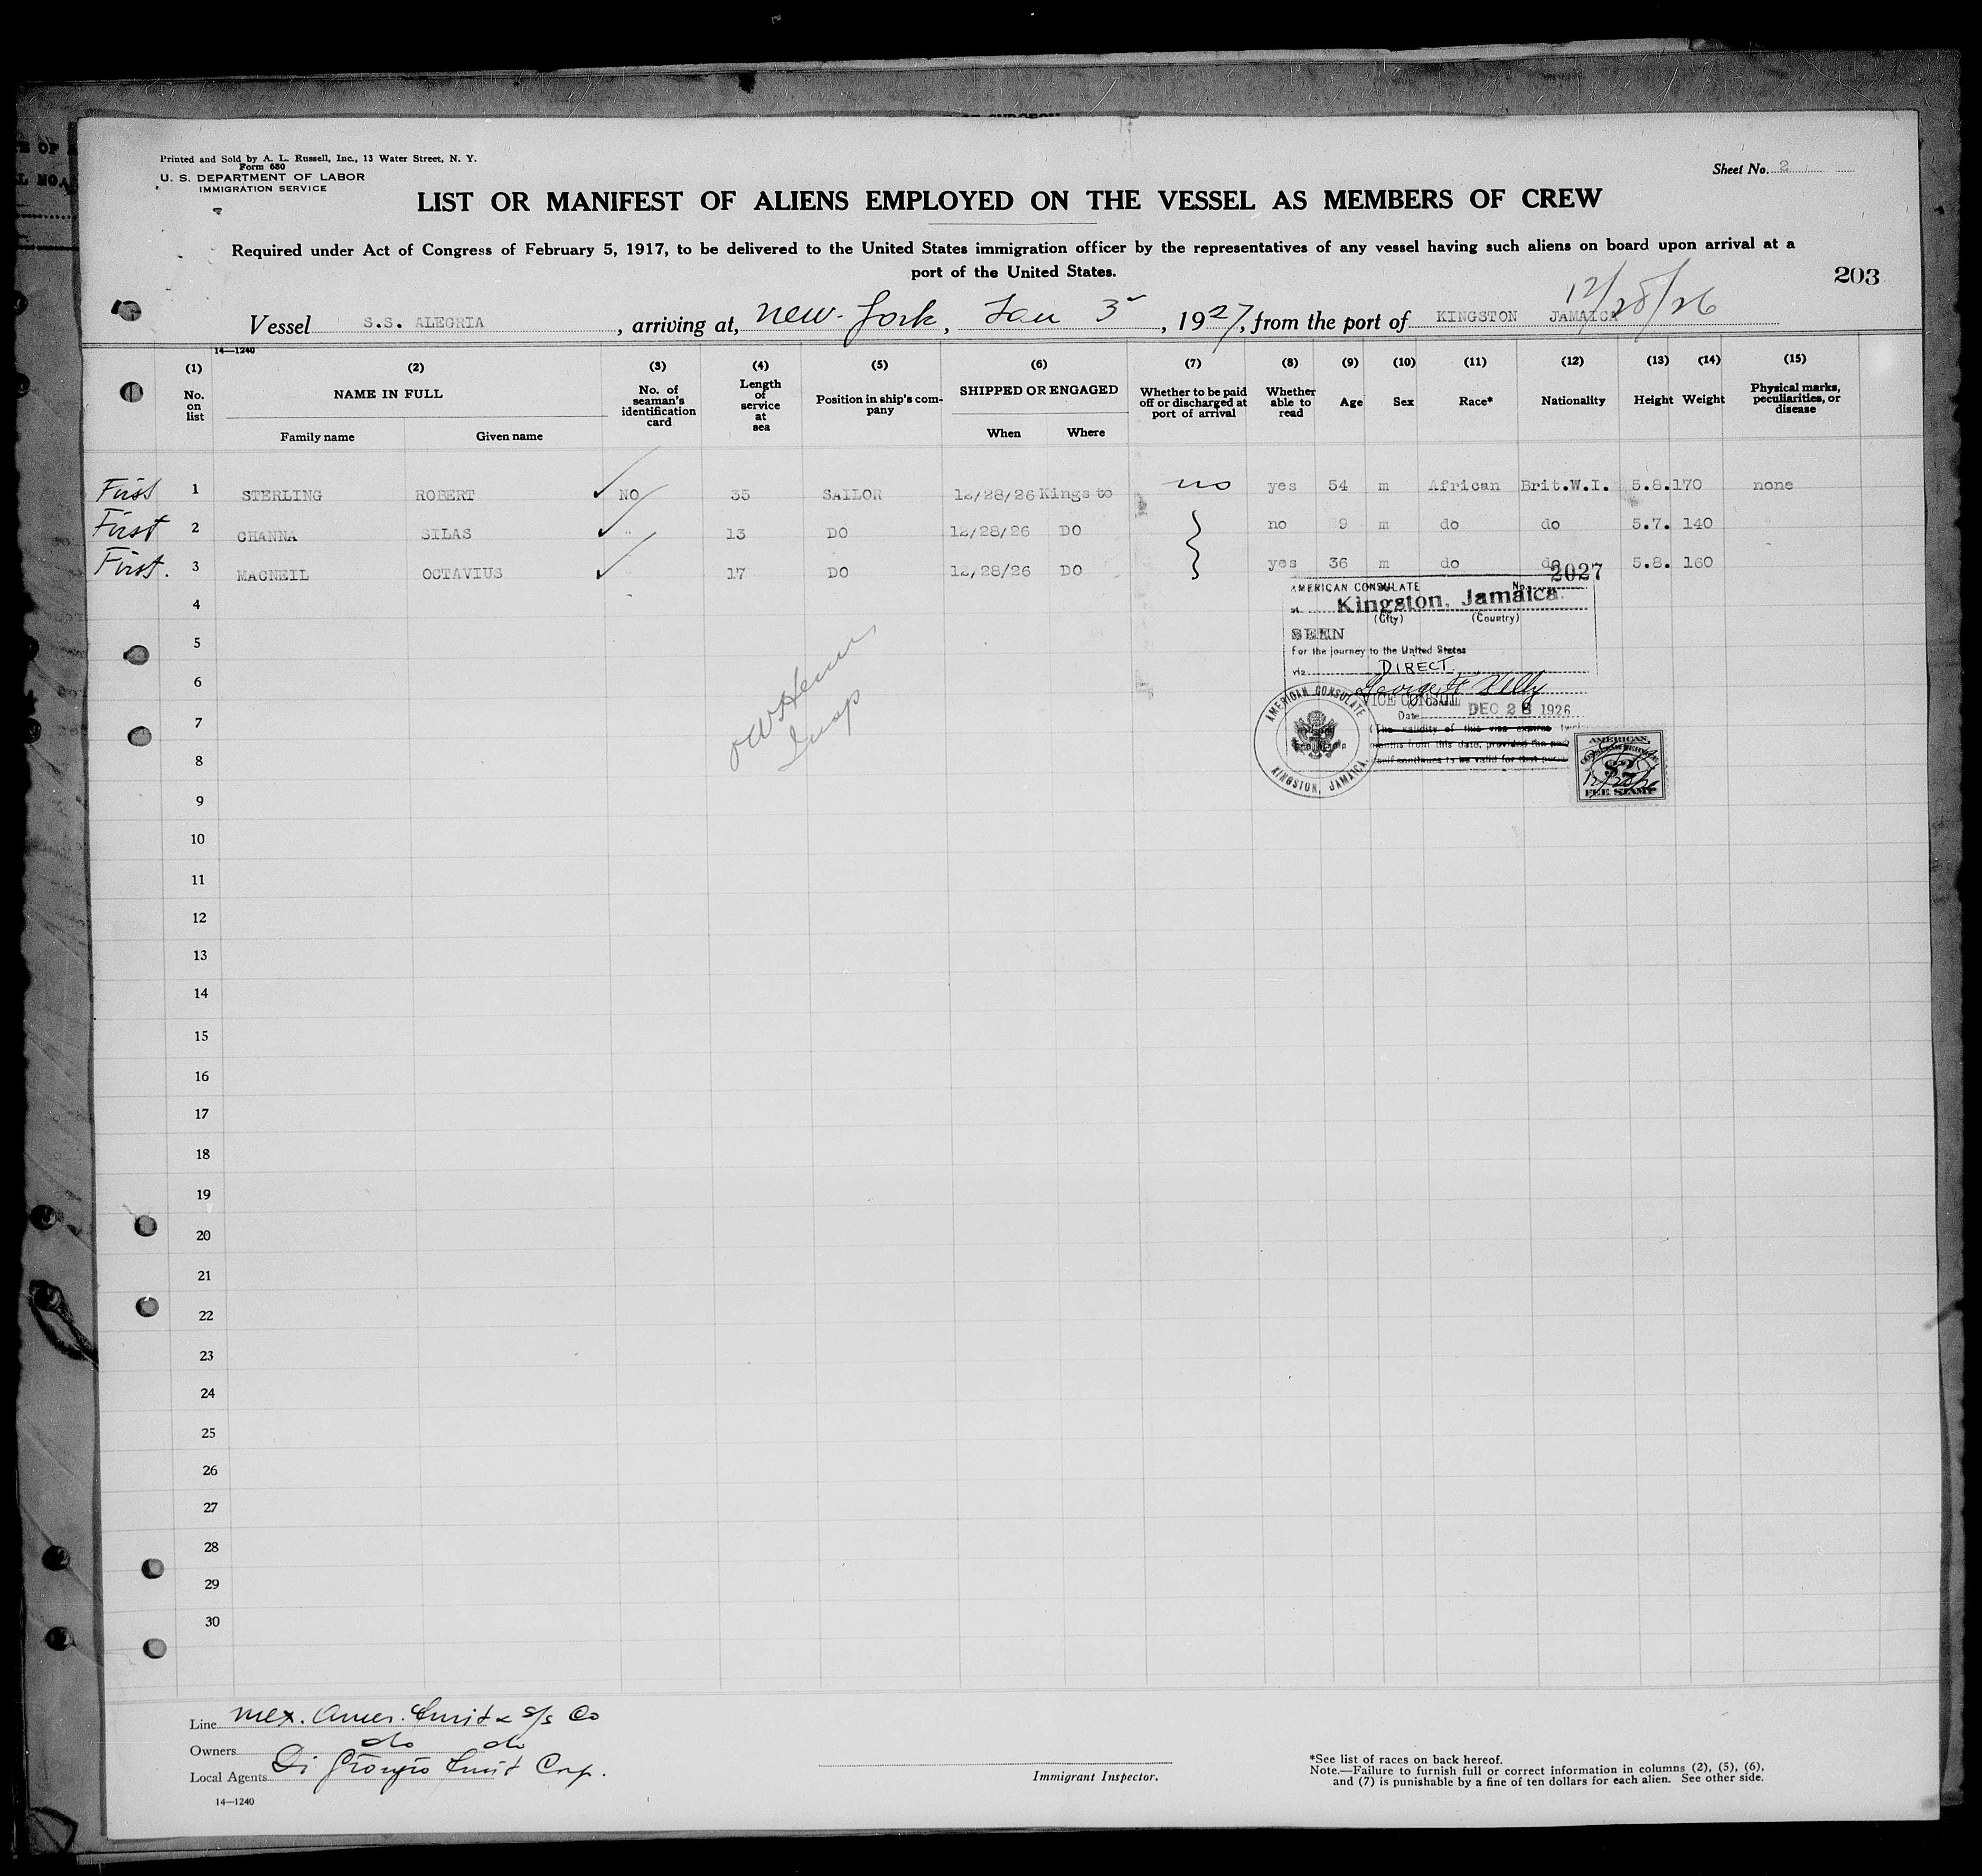 Printed and Sold by A. L. Russell, Inc., 13 Water Street, N. Y.
Form 680
U. S. DEPARTMENT OF LABOR
IMMIGRATION SERVICE
Sheet No. 2
LIST OR MANIFEST OF ALIENS EMPLOYED ON THE VESSEL AS MEMBERS OF CREW
Required under Act of Congress of February 5, 1917, to be delivered to the United States immigration officer by the representatives of any vessel having such aliens on board upon arrival at a
port of the United States.
203
12/28/26
Vessel S.S. ALEGRIA, arriving at, New York, Jan 3, 1927, from the port of KINGSTON JAMAICA
14—1240
(1) (2) (3) (4) (5) (6) (7) (8) (9) (10) (11) (12) (13) (14) (15)
No. on list NAME IN FULL No. of seaman's identification card Length of service at sea Position in ship's company SHIPPED OR ENGAGED Whether to be paid off or discharged at port of arrival Whether able to read Age Sex Race* Nationality Height Weight Physical marks, peculiarities, or disease
Family name Given name When Where
First 1 STERLING ROBERT NO 35 SAILOR 12/28/26 Kingsto no yes 54 m African Brit.W.I. 5.8. 170 none
First 2 CHANNA SILAS " 13 DO 12/28/26 DO no 9 m do do 5.7. 140
First. 3 MACNEIL OCTAVIUS " 17 DO 12/28/26 DO yes 36 m do do 5.8. 160
4
5
6
7
8
9
10
11
12
13
14
15
16
17
18
19
20
21
22
23
24
25
26
27
28
29
30
AMERICAN CONSULATE No. 2027
at Kingston, Jamaica.
(City) (Country)
SEEN
For the journey to the United States
via DIRECT.
VICE CONSUL
Date DEC 28 1926
(The validity of this visa expires
months from this date, provided
continues to be valid for that
AMERICAN CONSULATE
KINGSTON, JAMAICA.
AMERICAN
$2
12/28/26
FEE STAMP
Insp
Line Mex. Amer. Fruit & S/s Co
Owners do do
Local Agents Di Giorgio Fruit Corp.
14—1240
Immigrant Inspector.
*See list of races on back hereof.
Note.—Failure to furnish full or correct information in columns (2), (5), (6),
and (7) is punishable by a fine of ten dollars for each alien. See other side.